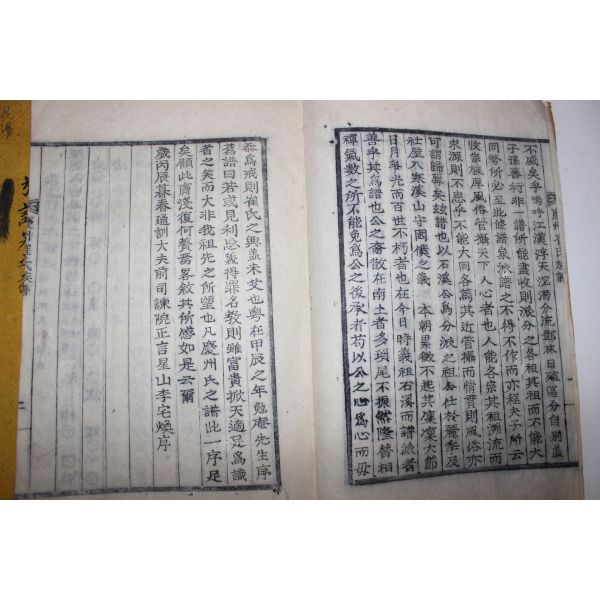 不盛矣乎嗚呼江漢浮天沱潛分流鄧林日滋區分自別盖
子孫蕃衍非一譜所能盡收則派分之各祖其祖而不能大
同勢所必至此修譜泉派譜之不得不作而亦程夫子所云
收宗族厚風俗管攝天下人心者也人能各宗其祖溯流而
求源則不患乎不能大同各篤其近管攝而惇實則風俗亦
可謂歸厚矣玆譜也以石溪公爲分派之祖公仕於麗季及
社屋入寒溪山守罔僕之義 本朝累徵不起其凜凜大節
日月爭光而百世不朽者也在今日時義祖石溪而譜派者
善乎其爲譜也公之裔散在南土者多瑣尾不振然隆替相
禪氣數之所不能免爲公之後承者苟以公之心爲心而毋
忝爲戒則崔氏之興盖未艾也粤在甲辰之年勉庵先生序
舊譜曰若或見利忘義得罪名敎則雖富貴掀天適足爲識
者之笑而大非我祖先之所望也凡慶州氏之譜此一序足
矣顧此膚淺復何贅焉畧敘其所感如是云爾
歲丙辰暮春通訓大夫前司諫院正言星山李宅煥序